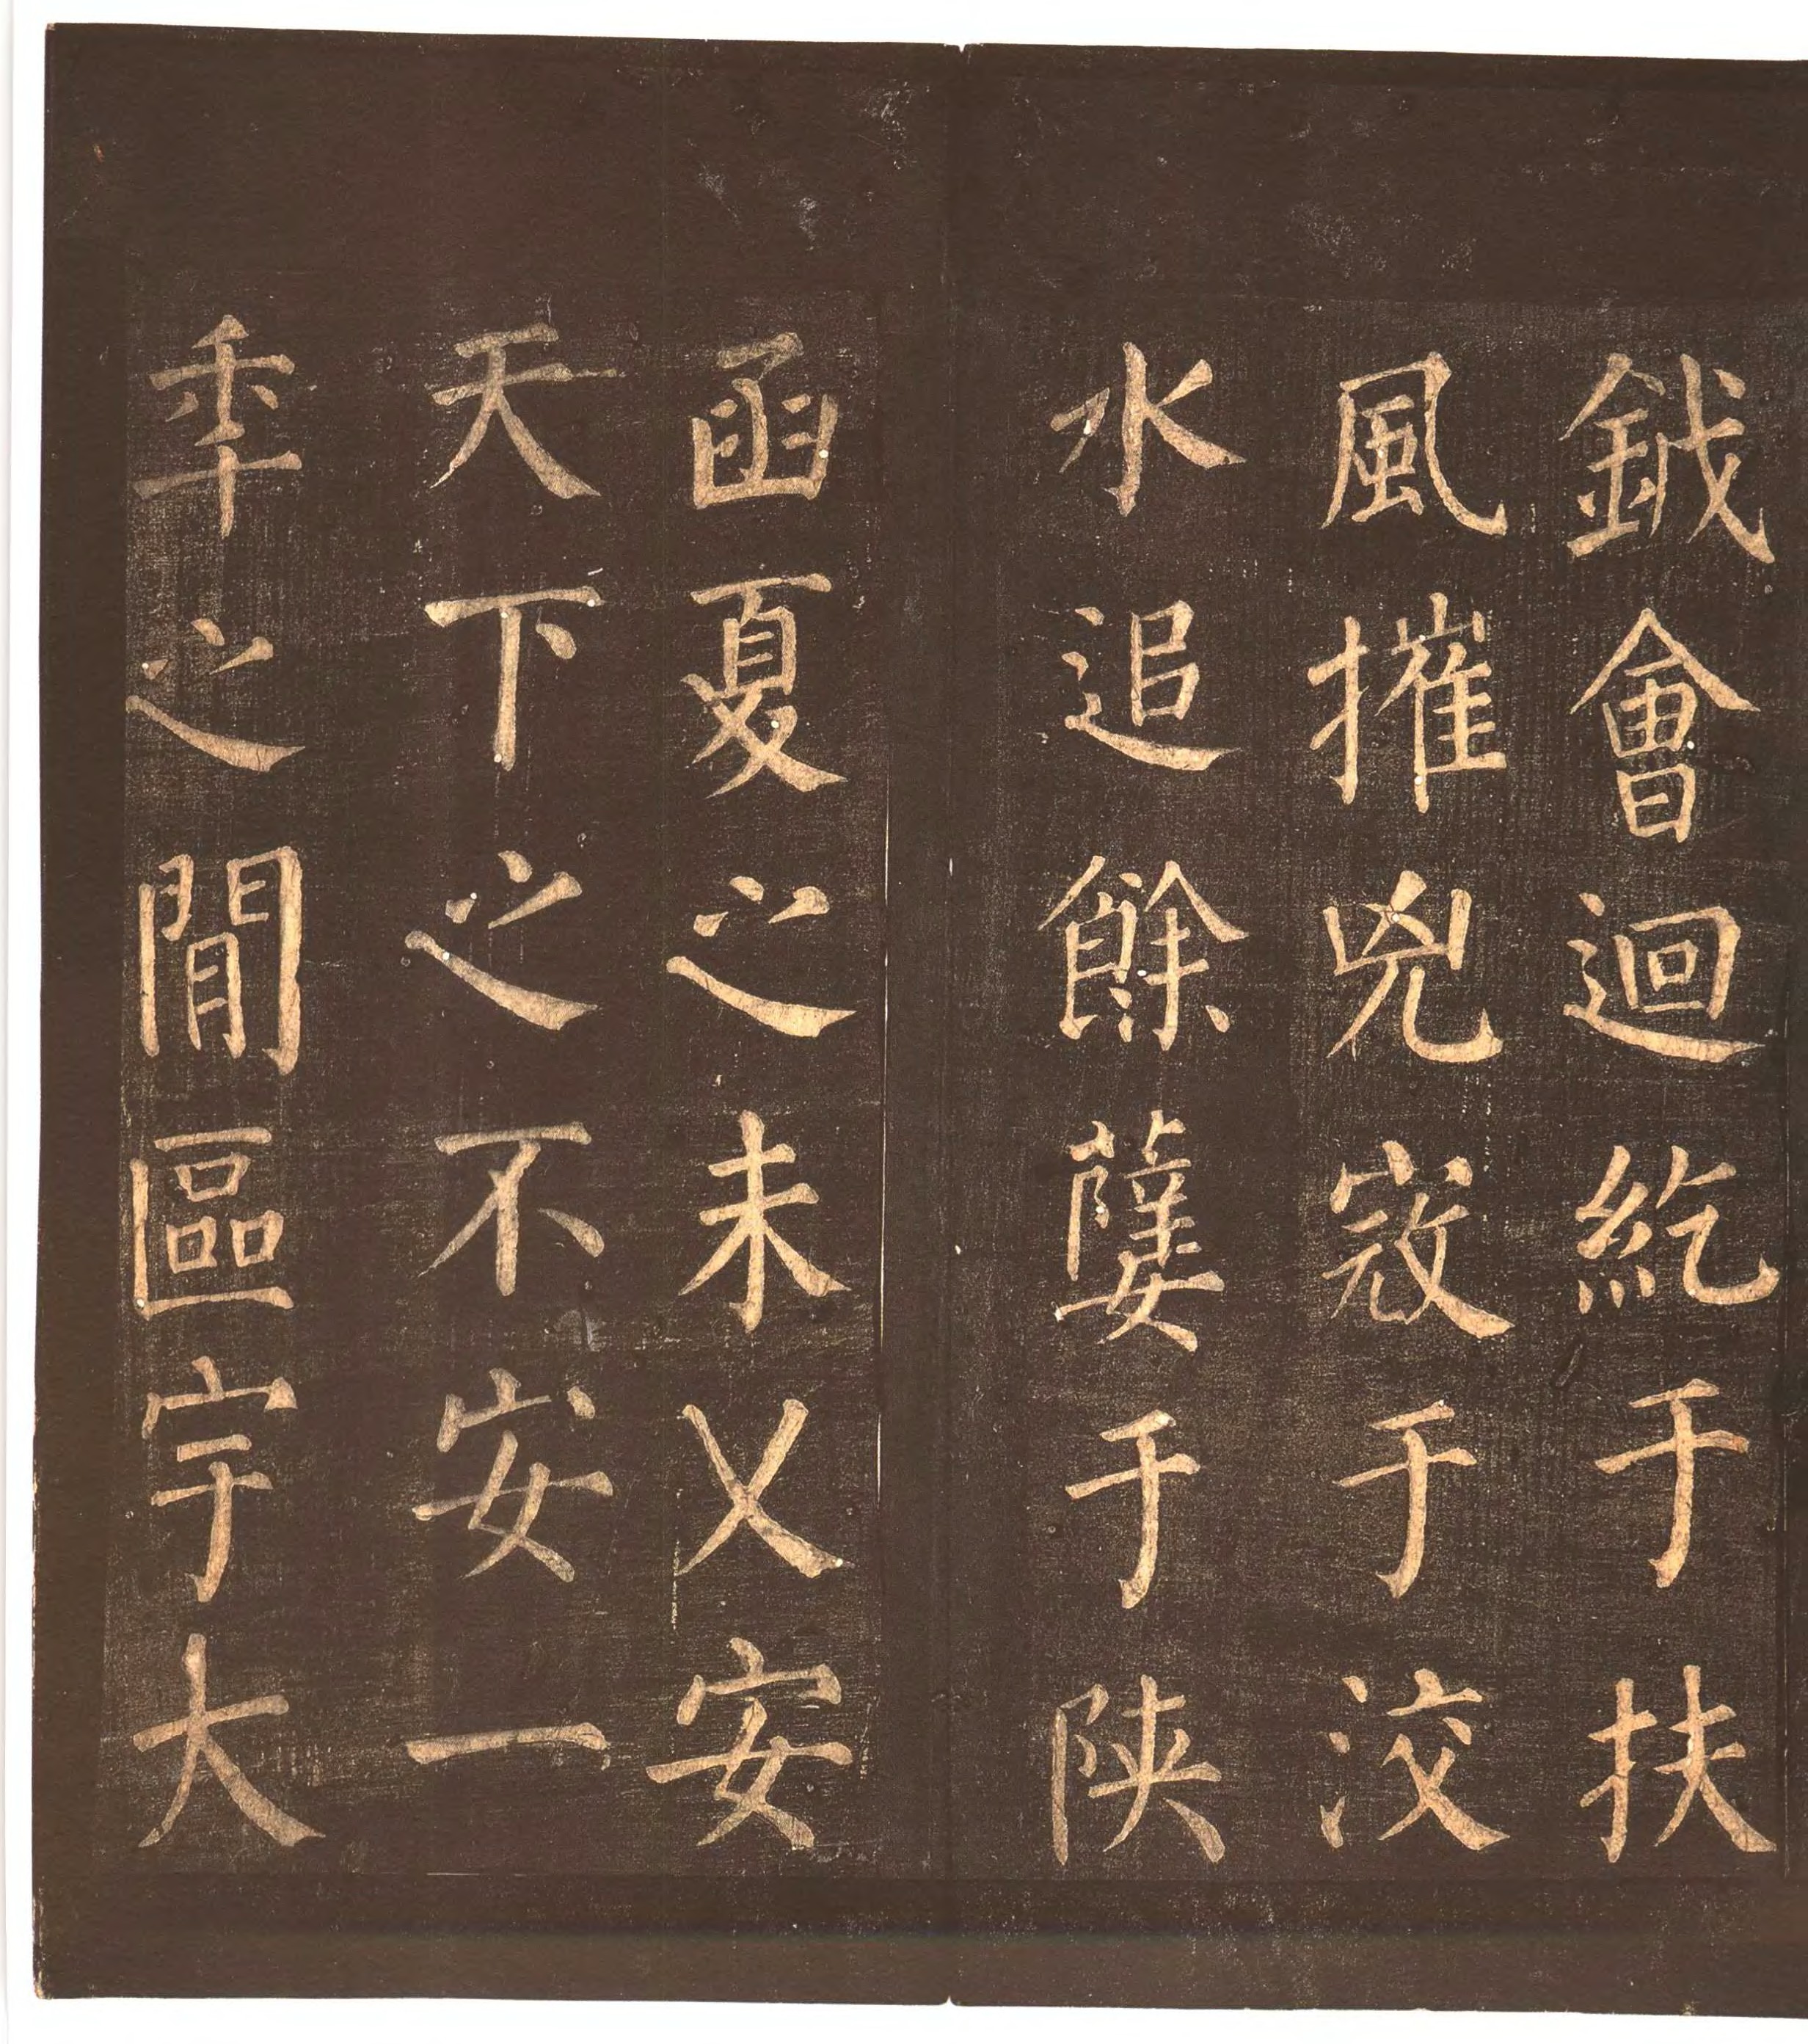 鉞會迴紇于扶
風摧兇寇于洨
水追餘㜸于陝
函夏之未乂安
天下之不安一
秊之閒區宇大